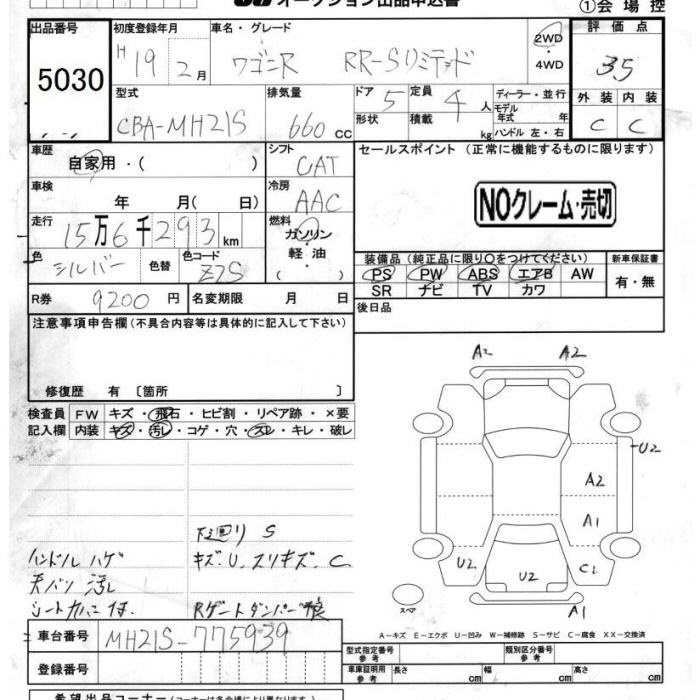 オークション出品申込書
①会場控
出品番号 初度登録年月 車名・グレード 評価点
5030 H19 2月 ワゴンR RR-Sリミテッド 2WD ・4WD 3.5
外装 内装
C C
型式 排気量 ドア 定員 ディーラー・並行
CBA-MH21S 660cc 5 4人 モデル年式 年
形状 積載 kg ハンドル 左・右
車歴 シフト セールスポイント (正常に機能するものに限ります)
自家用・( ) CAT
車検 冷房
年 月(日) AAC
NOクレーム・売切
走行 燃料
15万6千293km ガソリン・軽油・( )
色 シルバー 色替 色コード Z2S
装備品(純正品に限り○をつけてください) 新車保証書
PS PW ABS エアB AW 有・無
SR ナビ TV カワ
R券 9200円 名変期限 月 日
後日品
注意事項申告欄(不具合内容等は具体的に記入して下さい)
修復歴 有 〔箇所 〕
検査員 FW キズ・飛石・ヒビ割・リペア跡・×要
記入欄 内装 キズ・汚レ・コゲ・穴・スレ・キレ・破レ
A2 A2
U2
A2
A1
U2 U2 C1
A1
スペア
下廻り S
ハンドル ハゲ キズ、U、スリキズ、C
天バリ 汚レ
シートカバー付 Rゲートダンパー不良
A-キズ E-エクボ U-凹み W-補修跡 S-サビ C-腐食 XX-交換済
車台番号 MH21S-775939
型式指定番号 参考 類別区分番号 参考
登録番号
車庫証明用 参考 長さ cm 幅 cm 高さ cm
希望出品コーナー(コーナーは各会場により異なります)